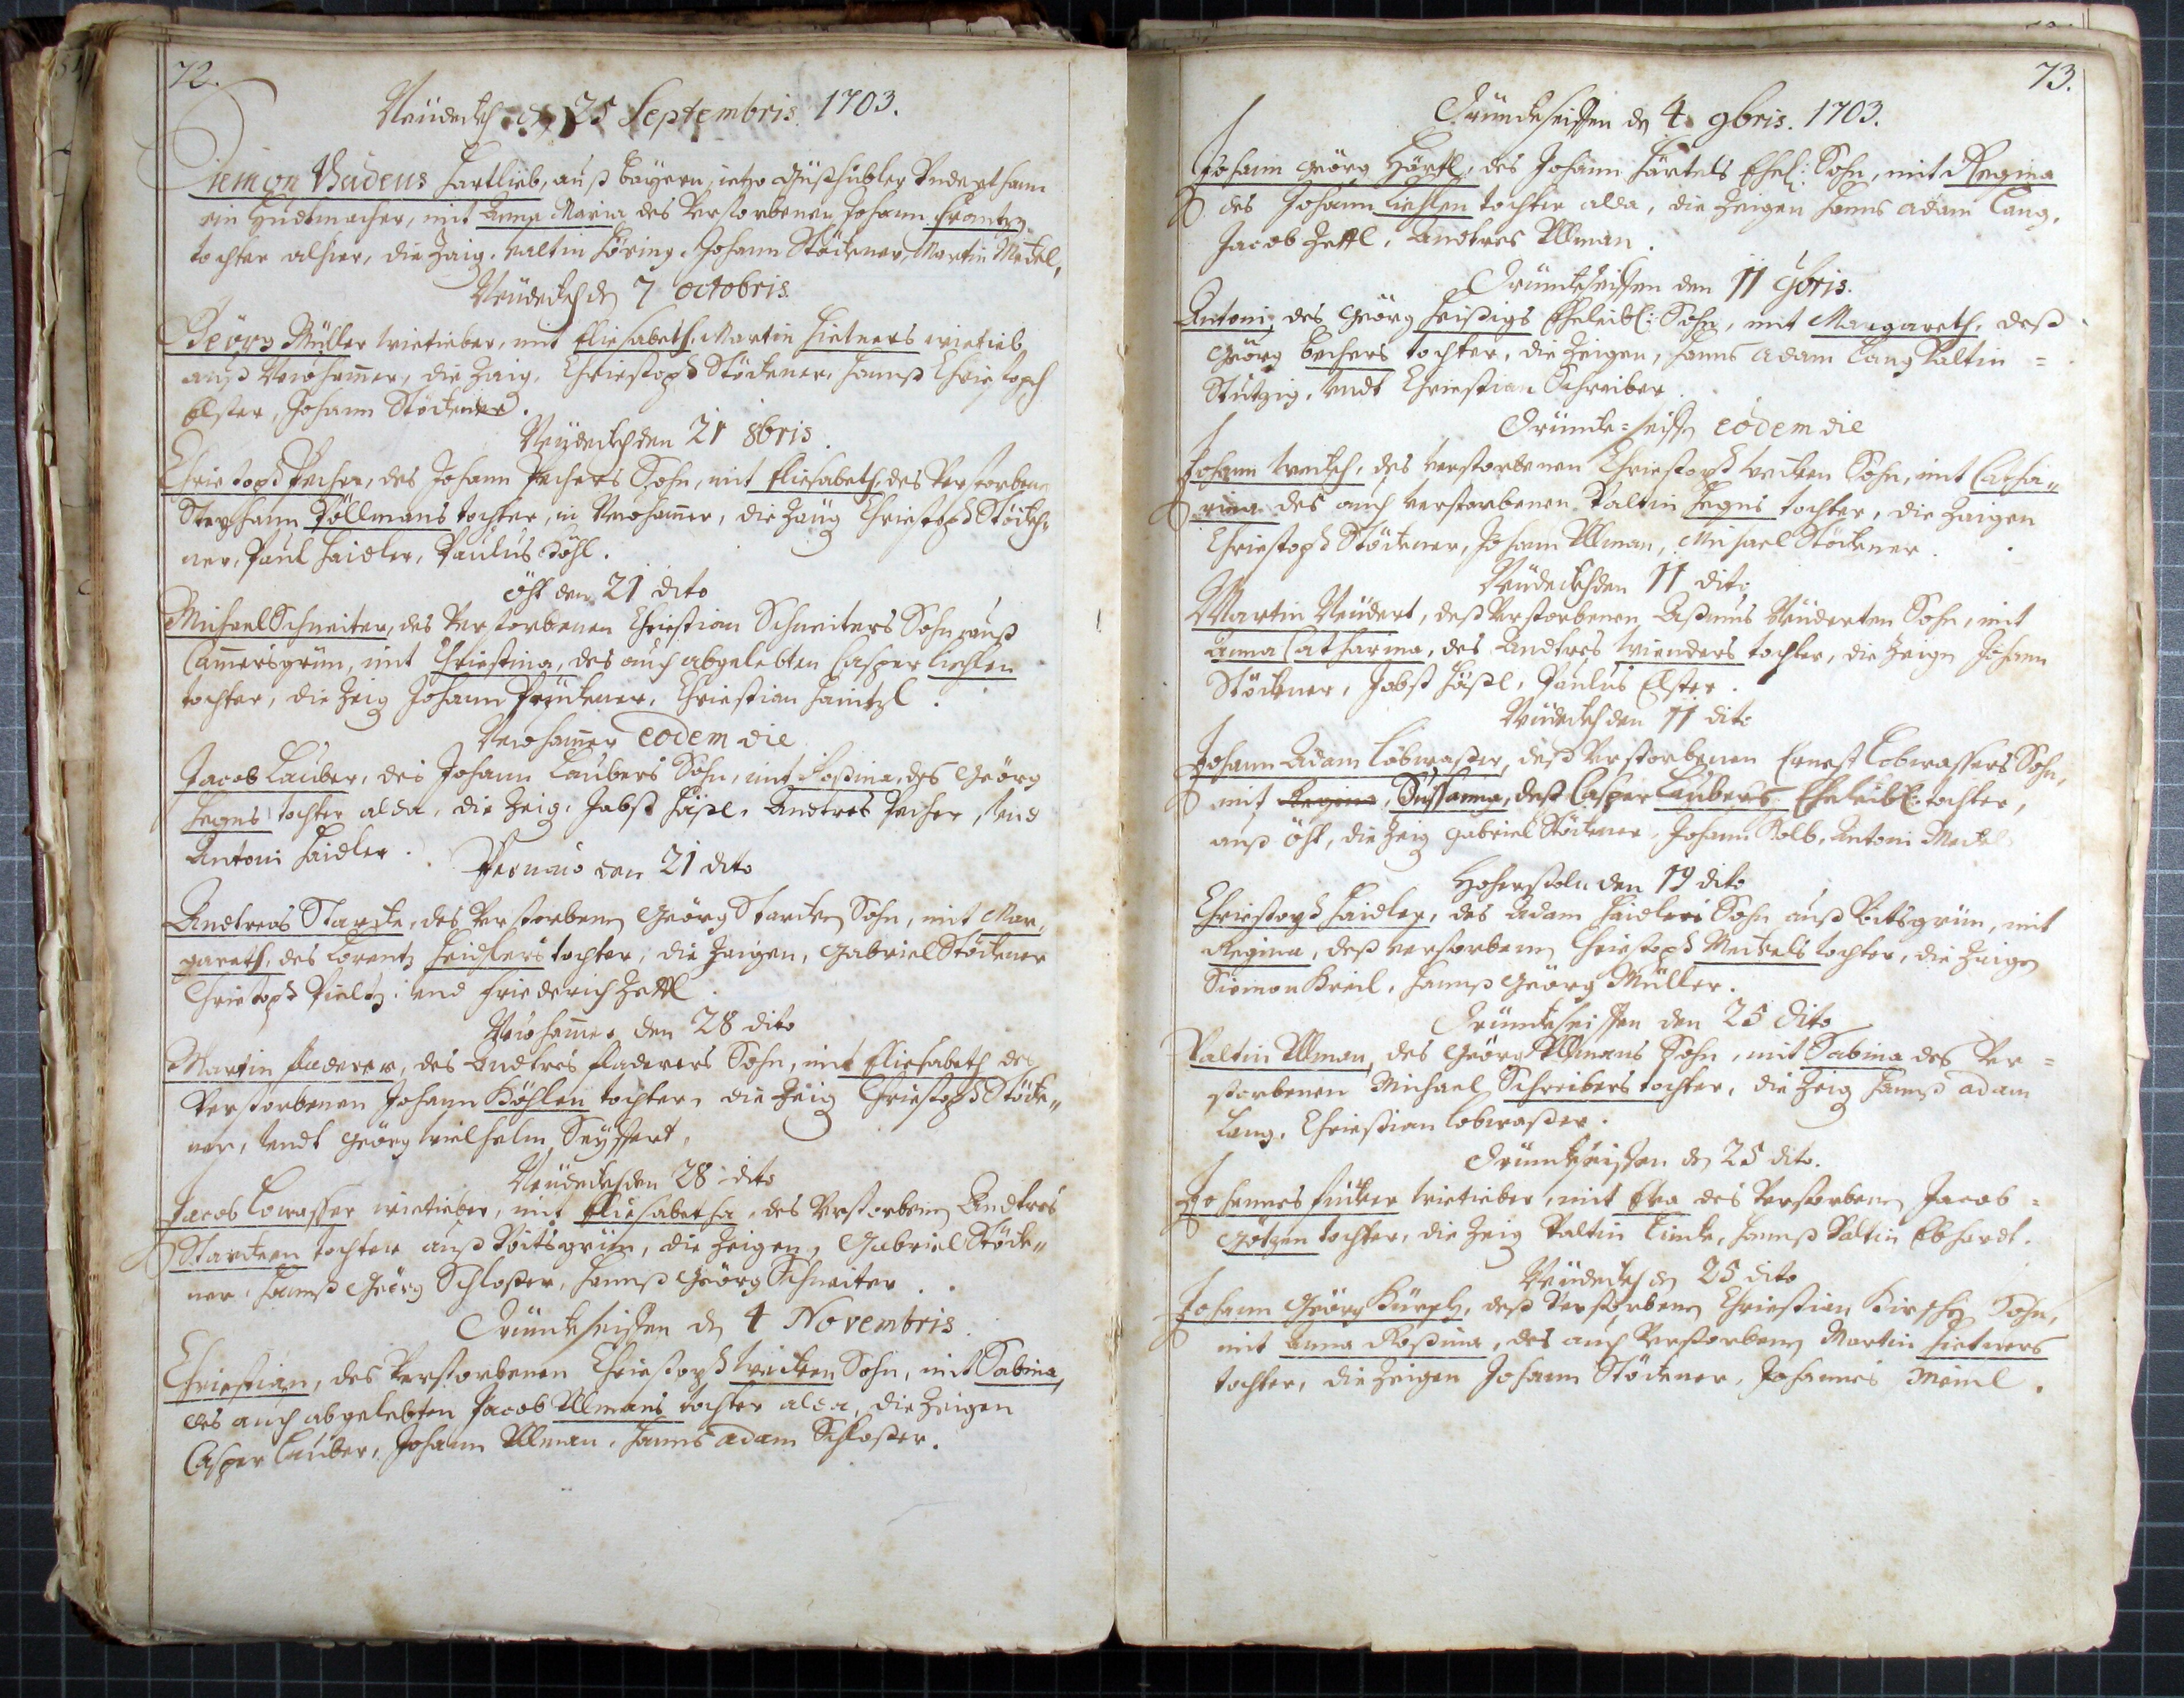 72.
Neudeckh den 25 Septembris. 1703.
Siemon Thadeus Hartlieb, auß bayern, ietzo
ein Hudtmacher, mit Anna Maria des Verstorbenen Johann Frantzen
tochter alhier, die Zaig. Valtin Höring, Johann Stöckner, Martin Meckl,
Neudeckh den 7 octobris.
Georg Müller wietieber, mit Eliesabeth, Martin Hietners wietieb
auß Neuhamer, die Zaig. Christoph Stöckner, Hanß Christoph
Elster, Johann Stöckner.
Neudeckh den 21 8bris.
Christoph Pecher, des Johann Pechers Sohn, mit Eliesabeth, des Verstorbenen
Stephann Pöllmans tochter, in Neuhamer, die Zaüg Christoph Stöckh-
ner, Paul Haidler, Paulus Köhl.
öht den 21 dito
Michael Schneiter, des Verstorbenen Christian Schneiters Sohn auß
Camersgrün, mit Christina, des auch abgelebten Casper Liehlen
tochter, die Zeig Johann Prückner, Christian Haintzl.
Neuhamer eodem die
Jacob Lauber, des Johann Laubers Sohn, mit Rosina, des Georg
Hegns tochter alda, die Zeig. Jobst Häßl, Andtres Pecher, und
Antoni Haidler.
Pernau den 21 dito
Andtreas Starcke, des Verstorbenen Georg Starcken Sohn, mit Mar,
gareth, des Lorentz Heidlers tochter, die Zeigen, Gabriel Stöckner
Christoph Pieltz, und Friederich Zettl.
Neuhamer den 28 dito
Martin Faderer, des Andtres Faderers Sohn, mit Eliesabeth des
Verstorbenen Johann Köhlen tochter, die Zeig Christoph Stöck-
ner, undt Georg Wielhelm Seyffert,
Neudeckh den 28 dito
Jacob Lowasser wietieber, mit Eliesabetha, des Verstorbenen Andtres
Starcken tochter auß Voitsgrün, die Zeigen, Gabriel Stöck-
ner, Hannß Georg Schloßer, Hannß Georg Schneiter.
Trinckseiffen den 4 Novembris.
Christian, des Verstorbenen Christoph Wecken Sohn, mit Sabina,
des auch abgelebten Jacob Ullmans tochter alda, die Zeigen
Casper Lauber, Johann Ullman, Hanns Adam Schloßer.
73.
Trinckseiffen den 4 9bris. 1703.
Johann Georg Härtl, des Johann Härtels Ehel: Sohn, mit Regina
des Johann Liehlen tochter alda, die Zeigen Hanns Adam Lang,
Jacob Zettl, Andtres Ullman.
Trinckseiffen den 11 9bris.
Antoni, des Georg Heißigs Eheleibl: Sohn, mit Margareth, deß
Georg Bechers tochter, die Zeigen, Hanns Adam Lang Valtin =
Stützig, undt Christian Schreiber.
Trinck=seiffen eodem die
Johann Weckh, des verstorbenen Christoph Wecken Sohn, mit Catha-
rina des auch verstorbenen Valtin Hegns tochter, die Zeigen
Christoph Stöckner, Johann Ullman, Michael Stöckner.
Neudeckh den 11 dito
Martin Neudert, deß Verstorbenen Aßmus Neuderten Sohn, mit
Anna Catharina, des Andtres Wienders tochter, die Zeigen Johann
Stöckner, Jobst Häßl, Paulus Elster.
Neudeckh den 11 dito
Johann Adam Lobwaßer, deß Verstorbenen Ernest Lobwassers Sohn,
mit Regina, Sussanna, deß Casper Laubers Eheleibl: tochter,
auß öht, die Zeig Gabriel Stöckner, Johann Kolb, Antoni Meckl
Hoherstoln den 19 dito
Christoph Haidler, des Adam Haidlers Sohn auß Voitsgrün, mit
Regina, deß verstorbenen Christoph Meckels tochter, die Zeigen
Siemon Kreil, Hannß Georg Müller.
Trinckseiffen den 25 dito
Valtin Ullman, des Georg Ullmans Sohn, mit Sabina des Ver=
storbenen Michael Schreibers tochter, die Zeig Hannß Adam
Lang, Christian Lobwaßer.
Trinckseiffen den 25 dito.
Johannes Fücker wietieber, mit Eva des Verstorbenen Jacob =
Götzen tochter, die Zeig Valtin Linck, Hannß Valtin Ebhardt.
Neudeckh den 25 dito
Johann Georg Kürsch, deß Verstorbenen Christian Kirschen Sohn,
mit Anna Rosina, des auch Verstorbenen Martin Hietners
tochter, die Zeigen Johann Stöckner, Johannes Meinl.